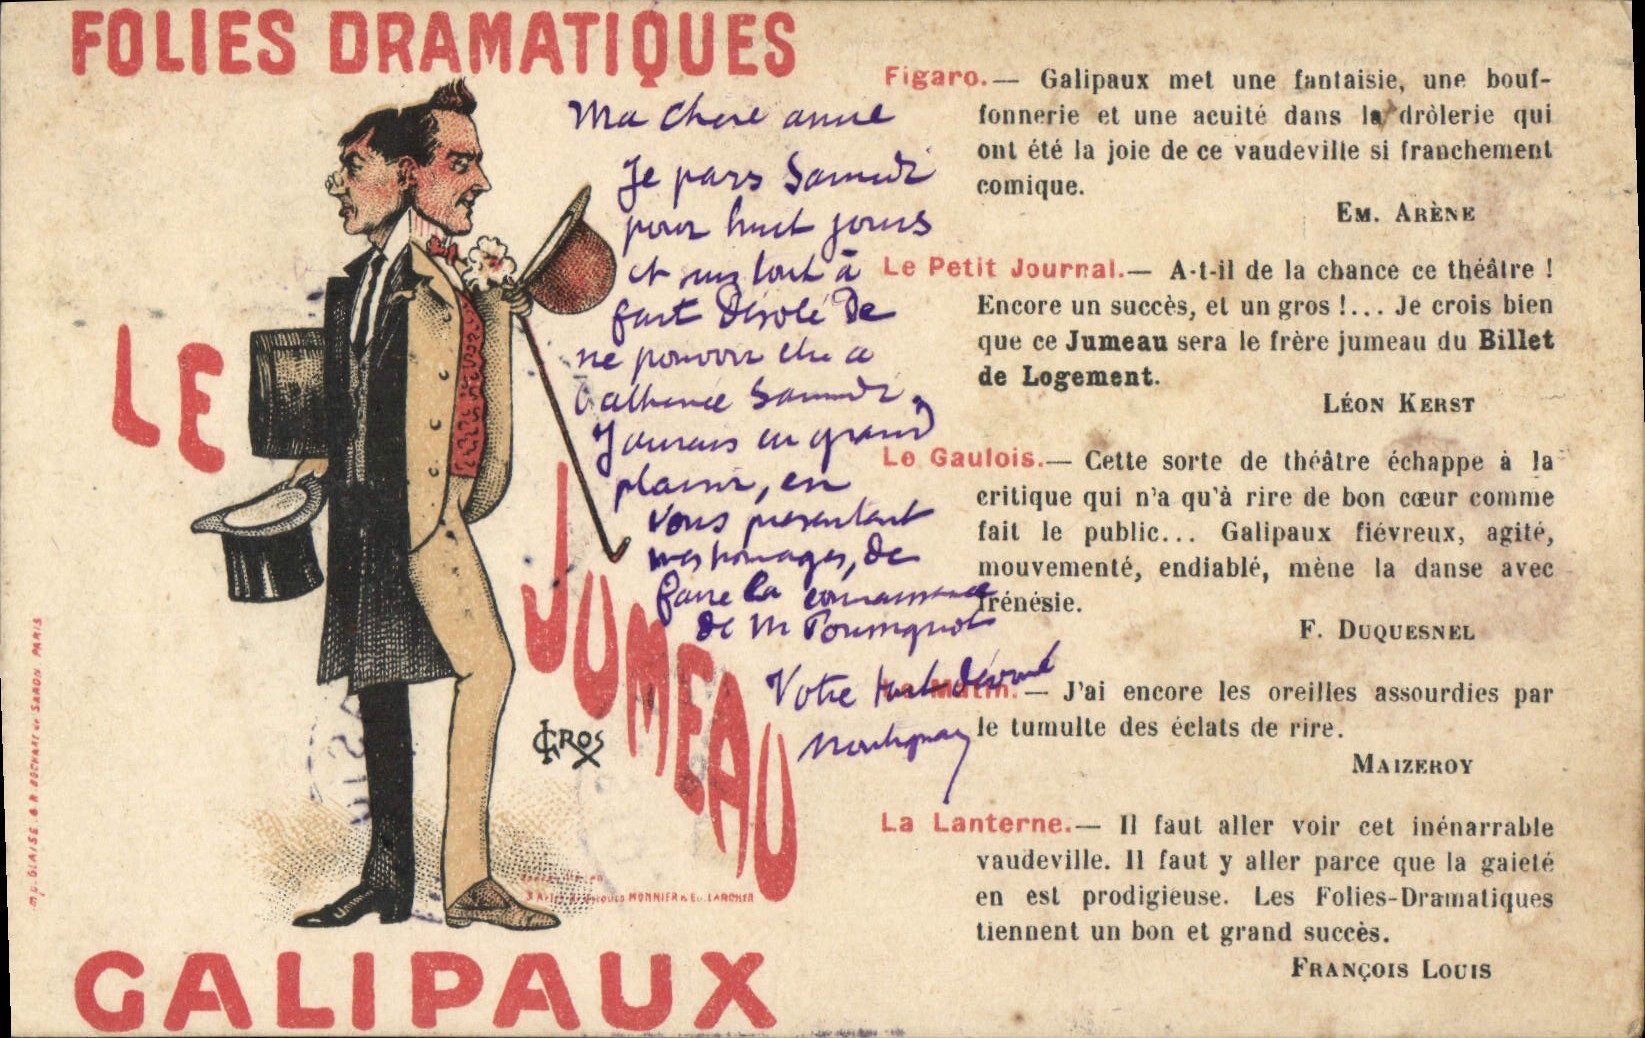 FOLIES DRAMATIQUES
LE
JUMEAU
GALIPAUX
GROS
Imp. BLAISE, & R. BOCHART de SARON PARIS
3 Actes de Jacques MONNIER & Ed. LARCHER
Ma Chere amie
Je pars Samedi
pour huit jours
et suis tout à
fait Désolé De
ne pouvoir être a
l'athenée Samedi,
J'aurais eu grand
plaisir, en
vous presentant
mes homages, de
faire la connaissance
de M
Votre tout dévoué
Figaro.— Galipaux met une fantaisie, une bouf-
fonnerie et une acuité dans la drôlerie qui
ont été la joie de ce vaudeville si franchement
comique.
EM. ARÈNE
Le Petit Journal.— A-t-il de la chance ce théâtre !
Encore un succès, et un gros !... Je crois bien
que ce Jumeau sera le frère jumeau du Billet
de Logement.
LÉON KERST
Le Gaulois.— Cette sorte de théâtre échappe à la
critique qui n'a qu'à rire de bon cœur comme
fait le public... Galipaux fiévreux, agité,
mouvementé, endiablé, mène la danse avec
frénésie.
F. DUQUESNEL
Le Matin.— J'ai encore les oreilles assourdies par
le tumulte des éclats de rire.
MAIZEROY
La Lanterne.— Il faut aller voir cet inénarrable
vaudeville. Il faut y aller parce que la gaieté
en est prodigieuse. Les Folies-Dramatiques
tiennent un bon et grand succès.
FRANÇOIS LOUIS